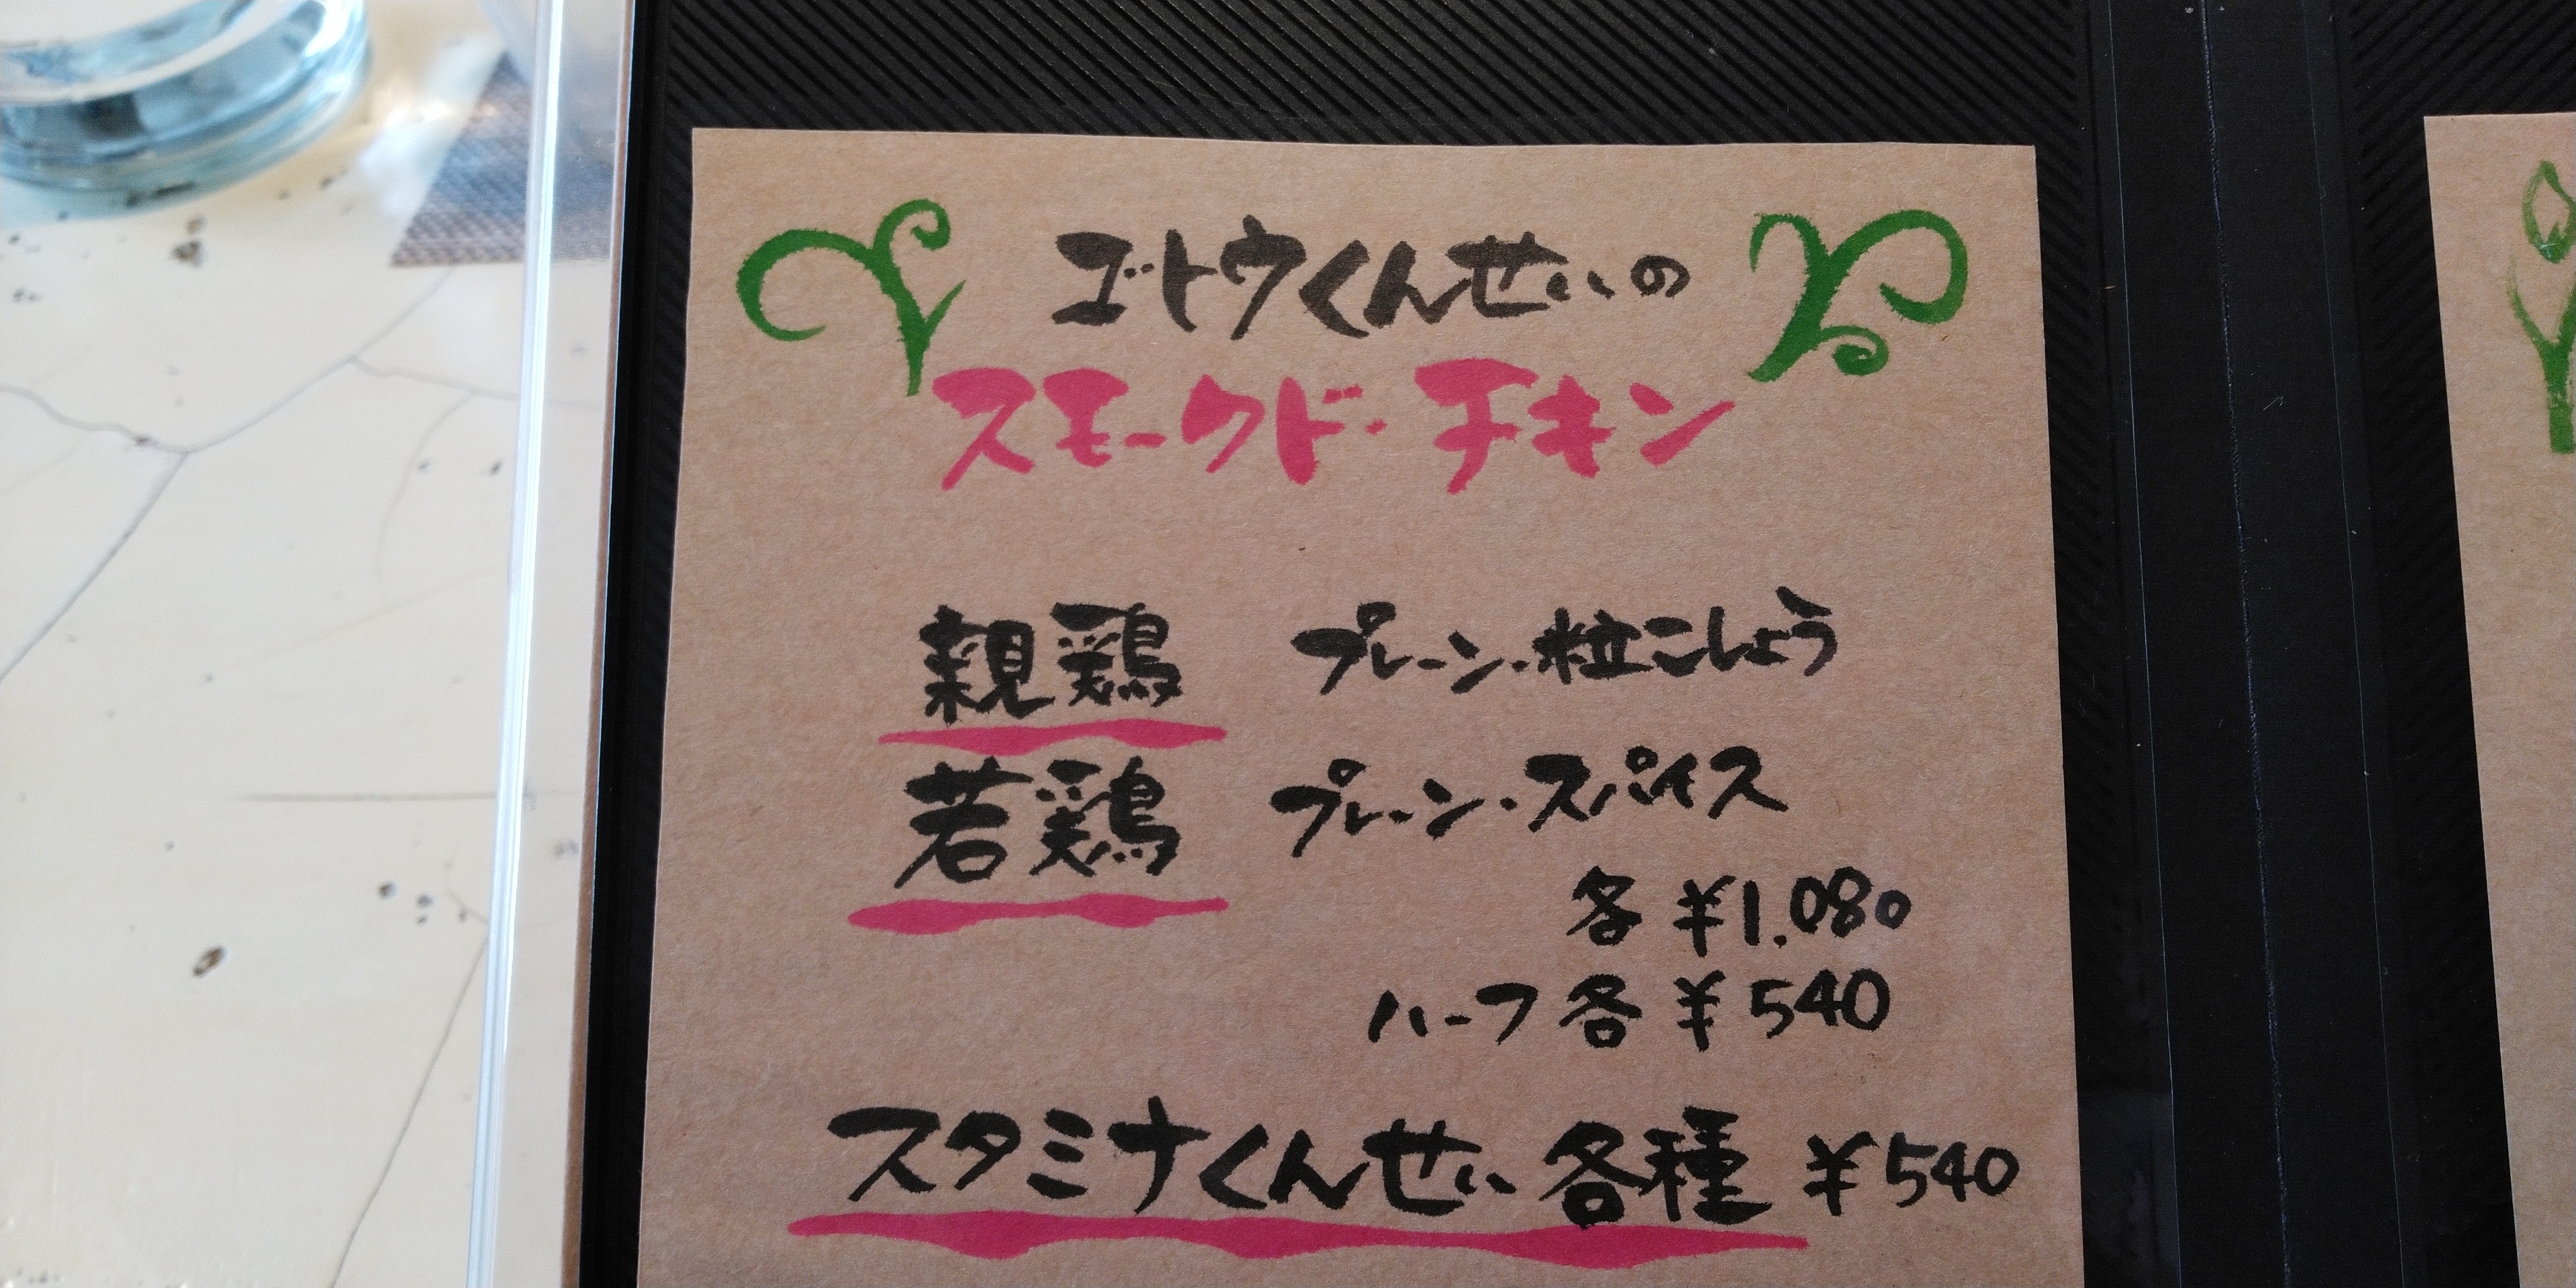 ゴトウくんせいの
スモークド・チキン
親鶏 プレーン・粒こしょう
若鶏 プレーン・スパイス
各 ¥1.080
ハーフ各 ¥540
スタミナくんせい各種 ¥540